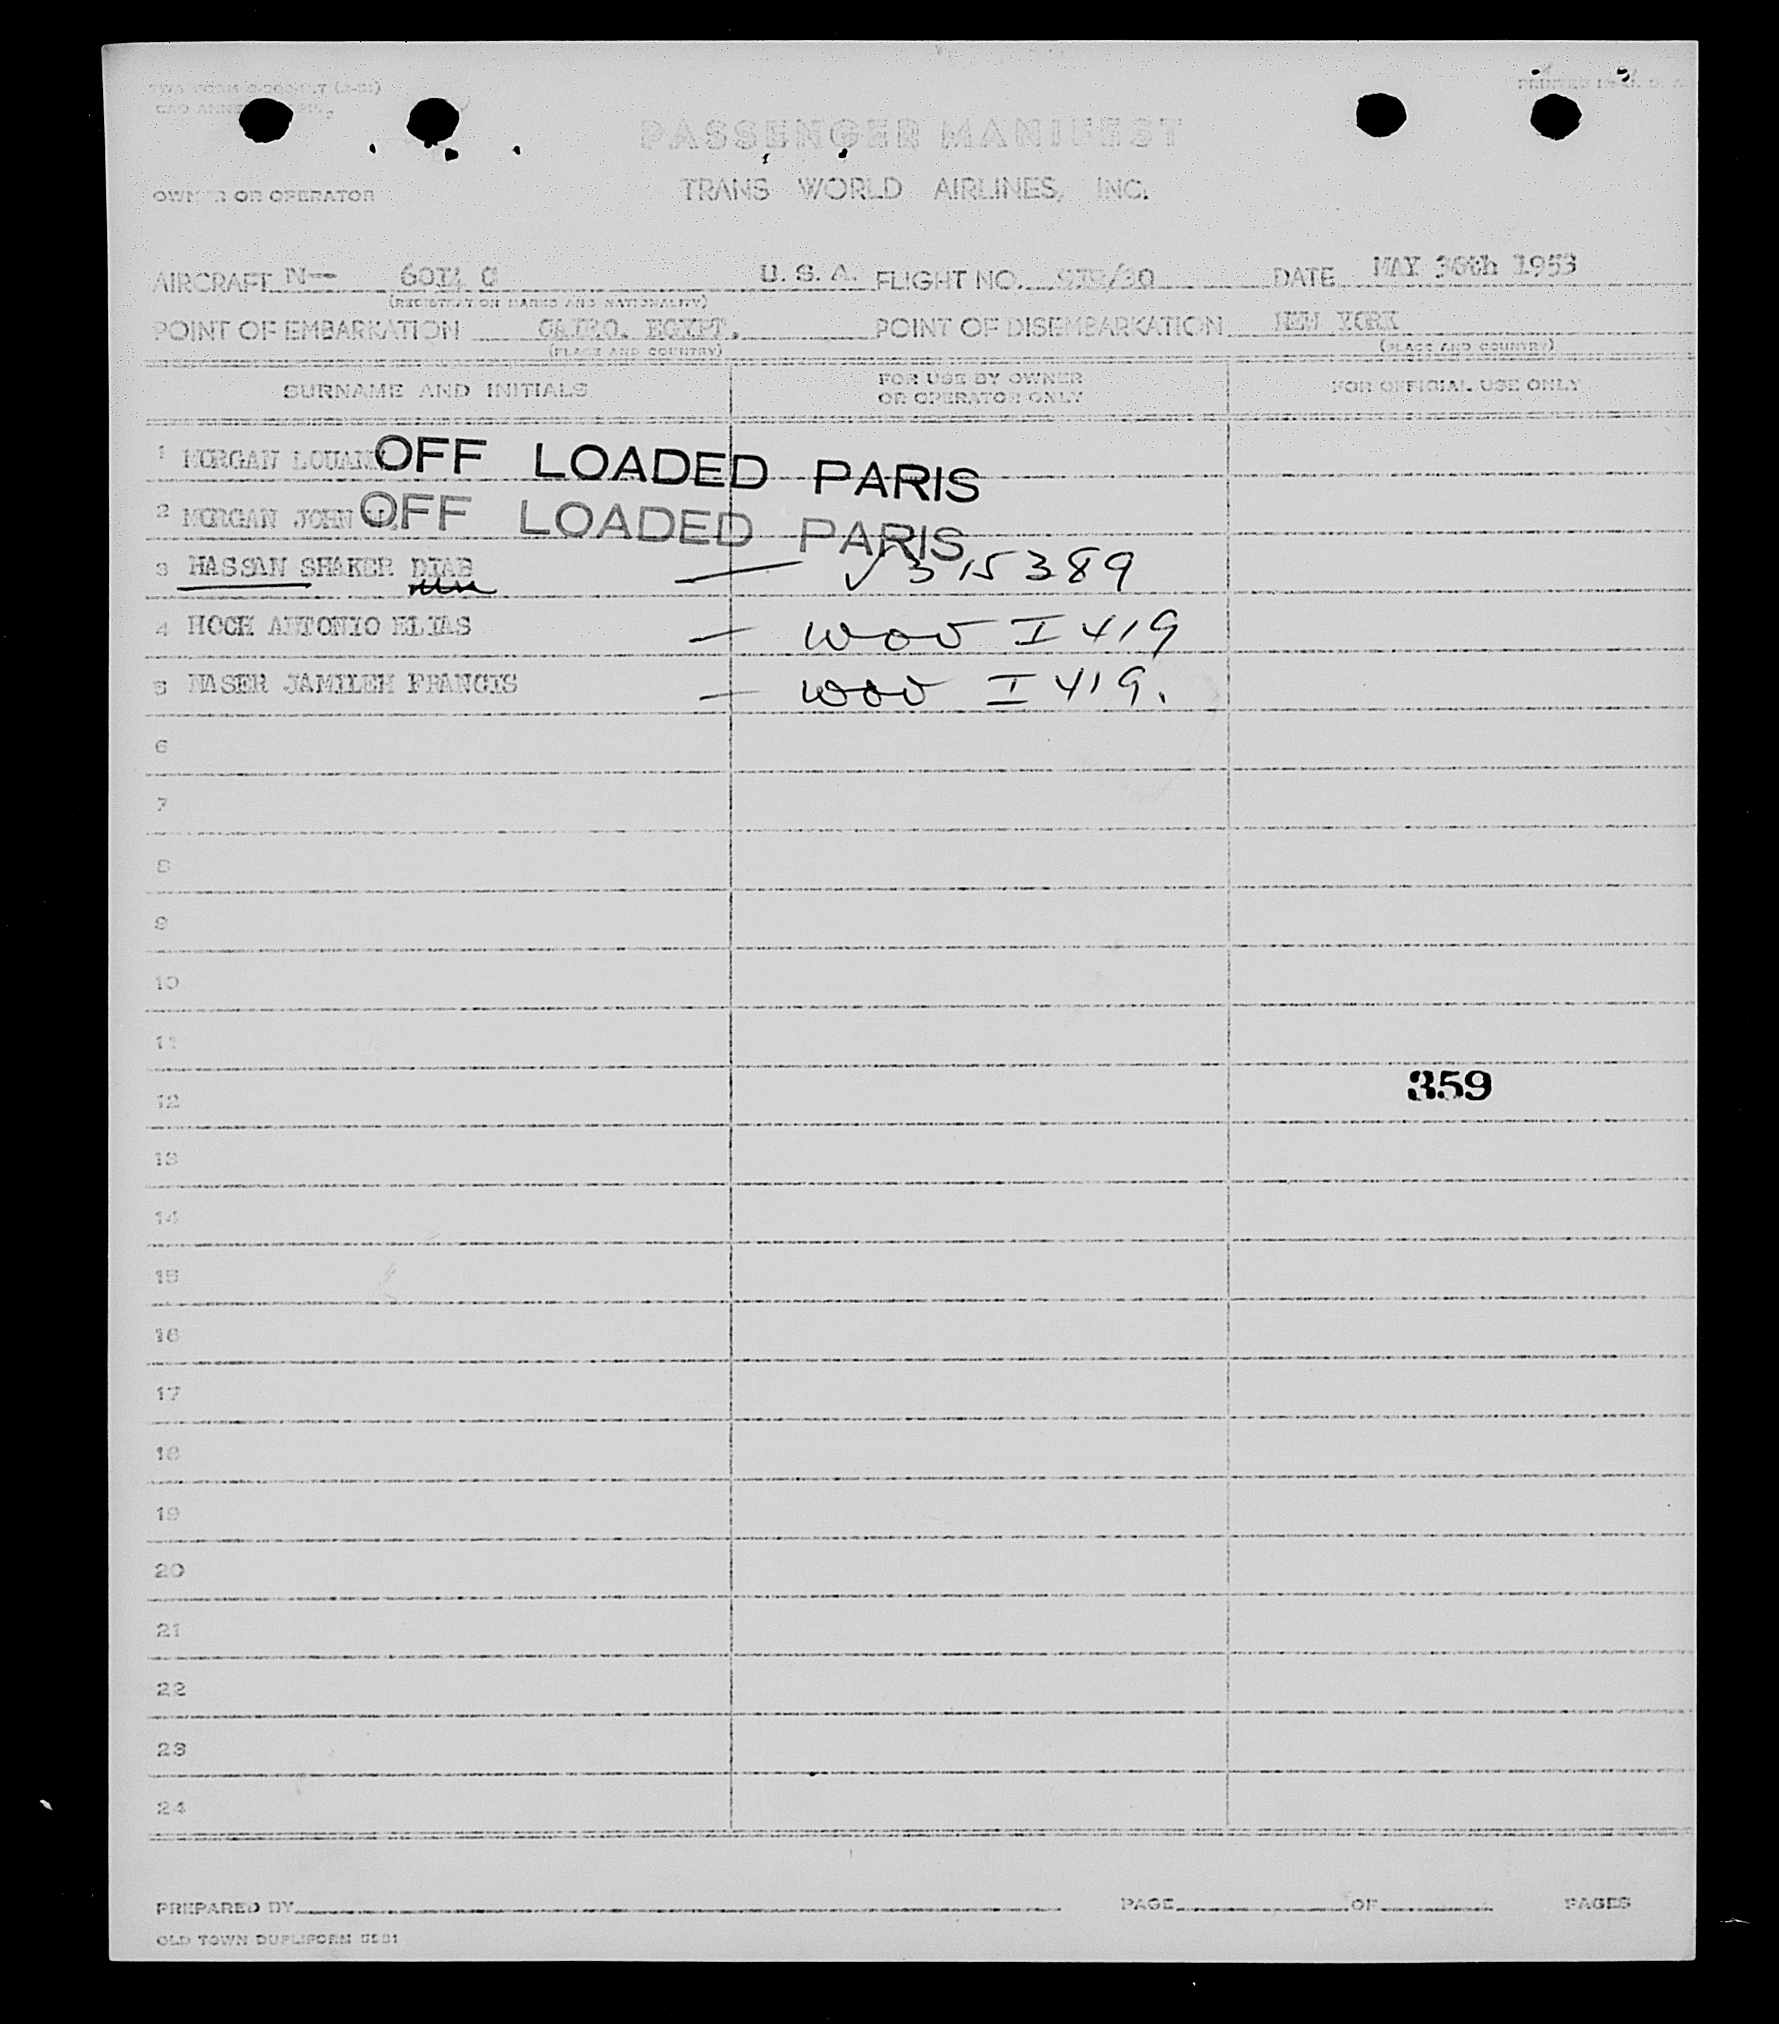 PRINTED IN U. S. A.
PASSENGER MANIFEST
OWNER OR OPERATOR TRANS WORLD AIRLINES, INC.
AIRCRAFT N— C U. S. A. FLIGHT NO. /30 DATE MAY 30th 1953
(REGISTRATION MARKS AND NATIONALITY)
POINT OF EMBARKATION CAIRO. EGYPT. POINT OF DISEMBARKATION NEW YORK
(PLACE AND COUNTRY) (PLACE AND COUNTRY)
SURNAME AND INITIALS FOR USE BY OWNER OR OPERATOR ONLY FOR OFFICIAL USE ONLY
1 MORGAN OFF LOADED PARIS
2 MORGAN JOHN OFF LOADED PARIS
3 HASSAN SHAKER DIAB — √315389
4 HOCH ANTONIO ELIAS — wov I 419
5 NASER JAMILEH FRANCIS — wov I 419.
6
7
8
9
10
11
12 359
13
14
15
16
17
18
19
20
21
22
23
24
PREPARED BY PAGE OF PAGES
OLD TOWN DUPLIFORM